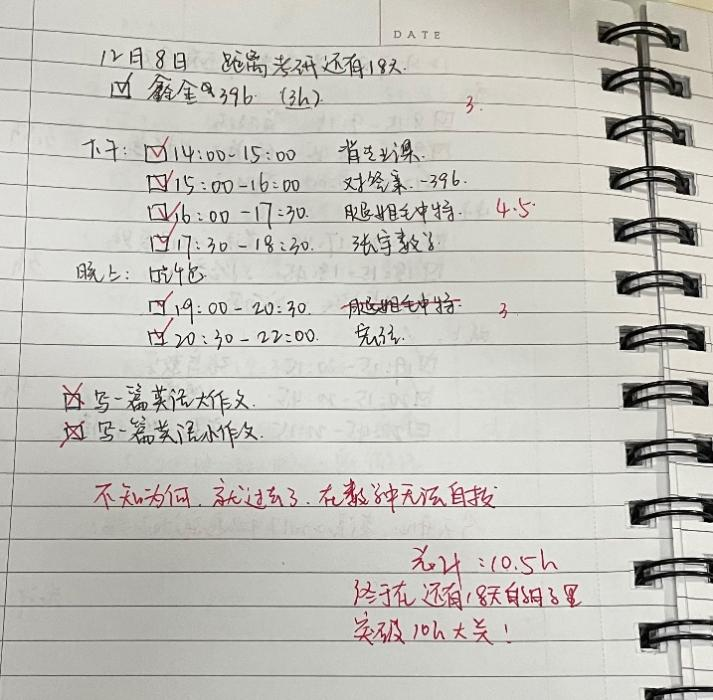 DATE
12月8日 距离考研还有18天
鑫全 396 (3h) 3.
下午: 14:00-15:00 背专业课.
15:00-16:00 对答案-396.
16:00-17:30. 腿姐毛中特. 4.5.
17:30-18:30. 张宇数学
晚上: 吃午包
19:00-20:30. 腿姐毛中特. 3
20:30-22:00.
写一篇英语大作文.
写一篇英语小作文.
不知为何, 就过去了, 在数学中无法自拔
总计:10.5h
终于在还有18天的日子里
突破10h大关!